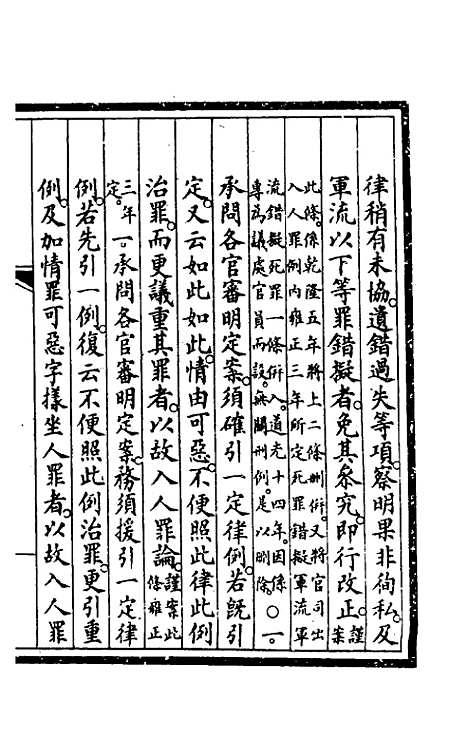 律稍有未協。遺錯過失等項。察明果非徇私。及
軍流以下等罪錯擬者。免其叅究。即行改正。謹案
此條。係乾隆五年將上二條刪併。又將官司出
入人罪例内雍正三年所定死罪錯擬軍流軍
流錯擬死罪一條併入。道光十四年。因係
專爲議處官員而設。無關刑例。是以刪除。○一。
承問各官審明定案。須確引一定律例。若旣引
定。又云如此如此。情由可惡。不便照此律此例
治罪。而更議重其罪者。以故入人罪論。謹案此條雍正
三年定。一。承問各官審明定案。務須援引一定律
例。若先引一例。復云不便照此例治罪。更引重
例。及加情罪可惡字樣坐人罪者。以故入人罪